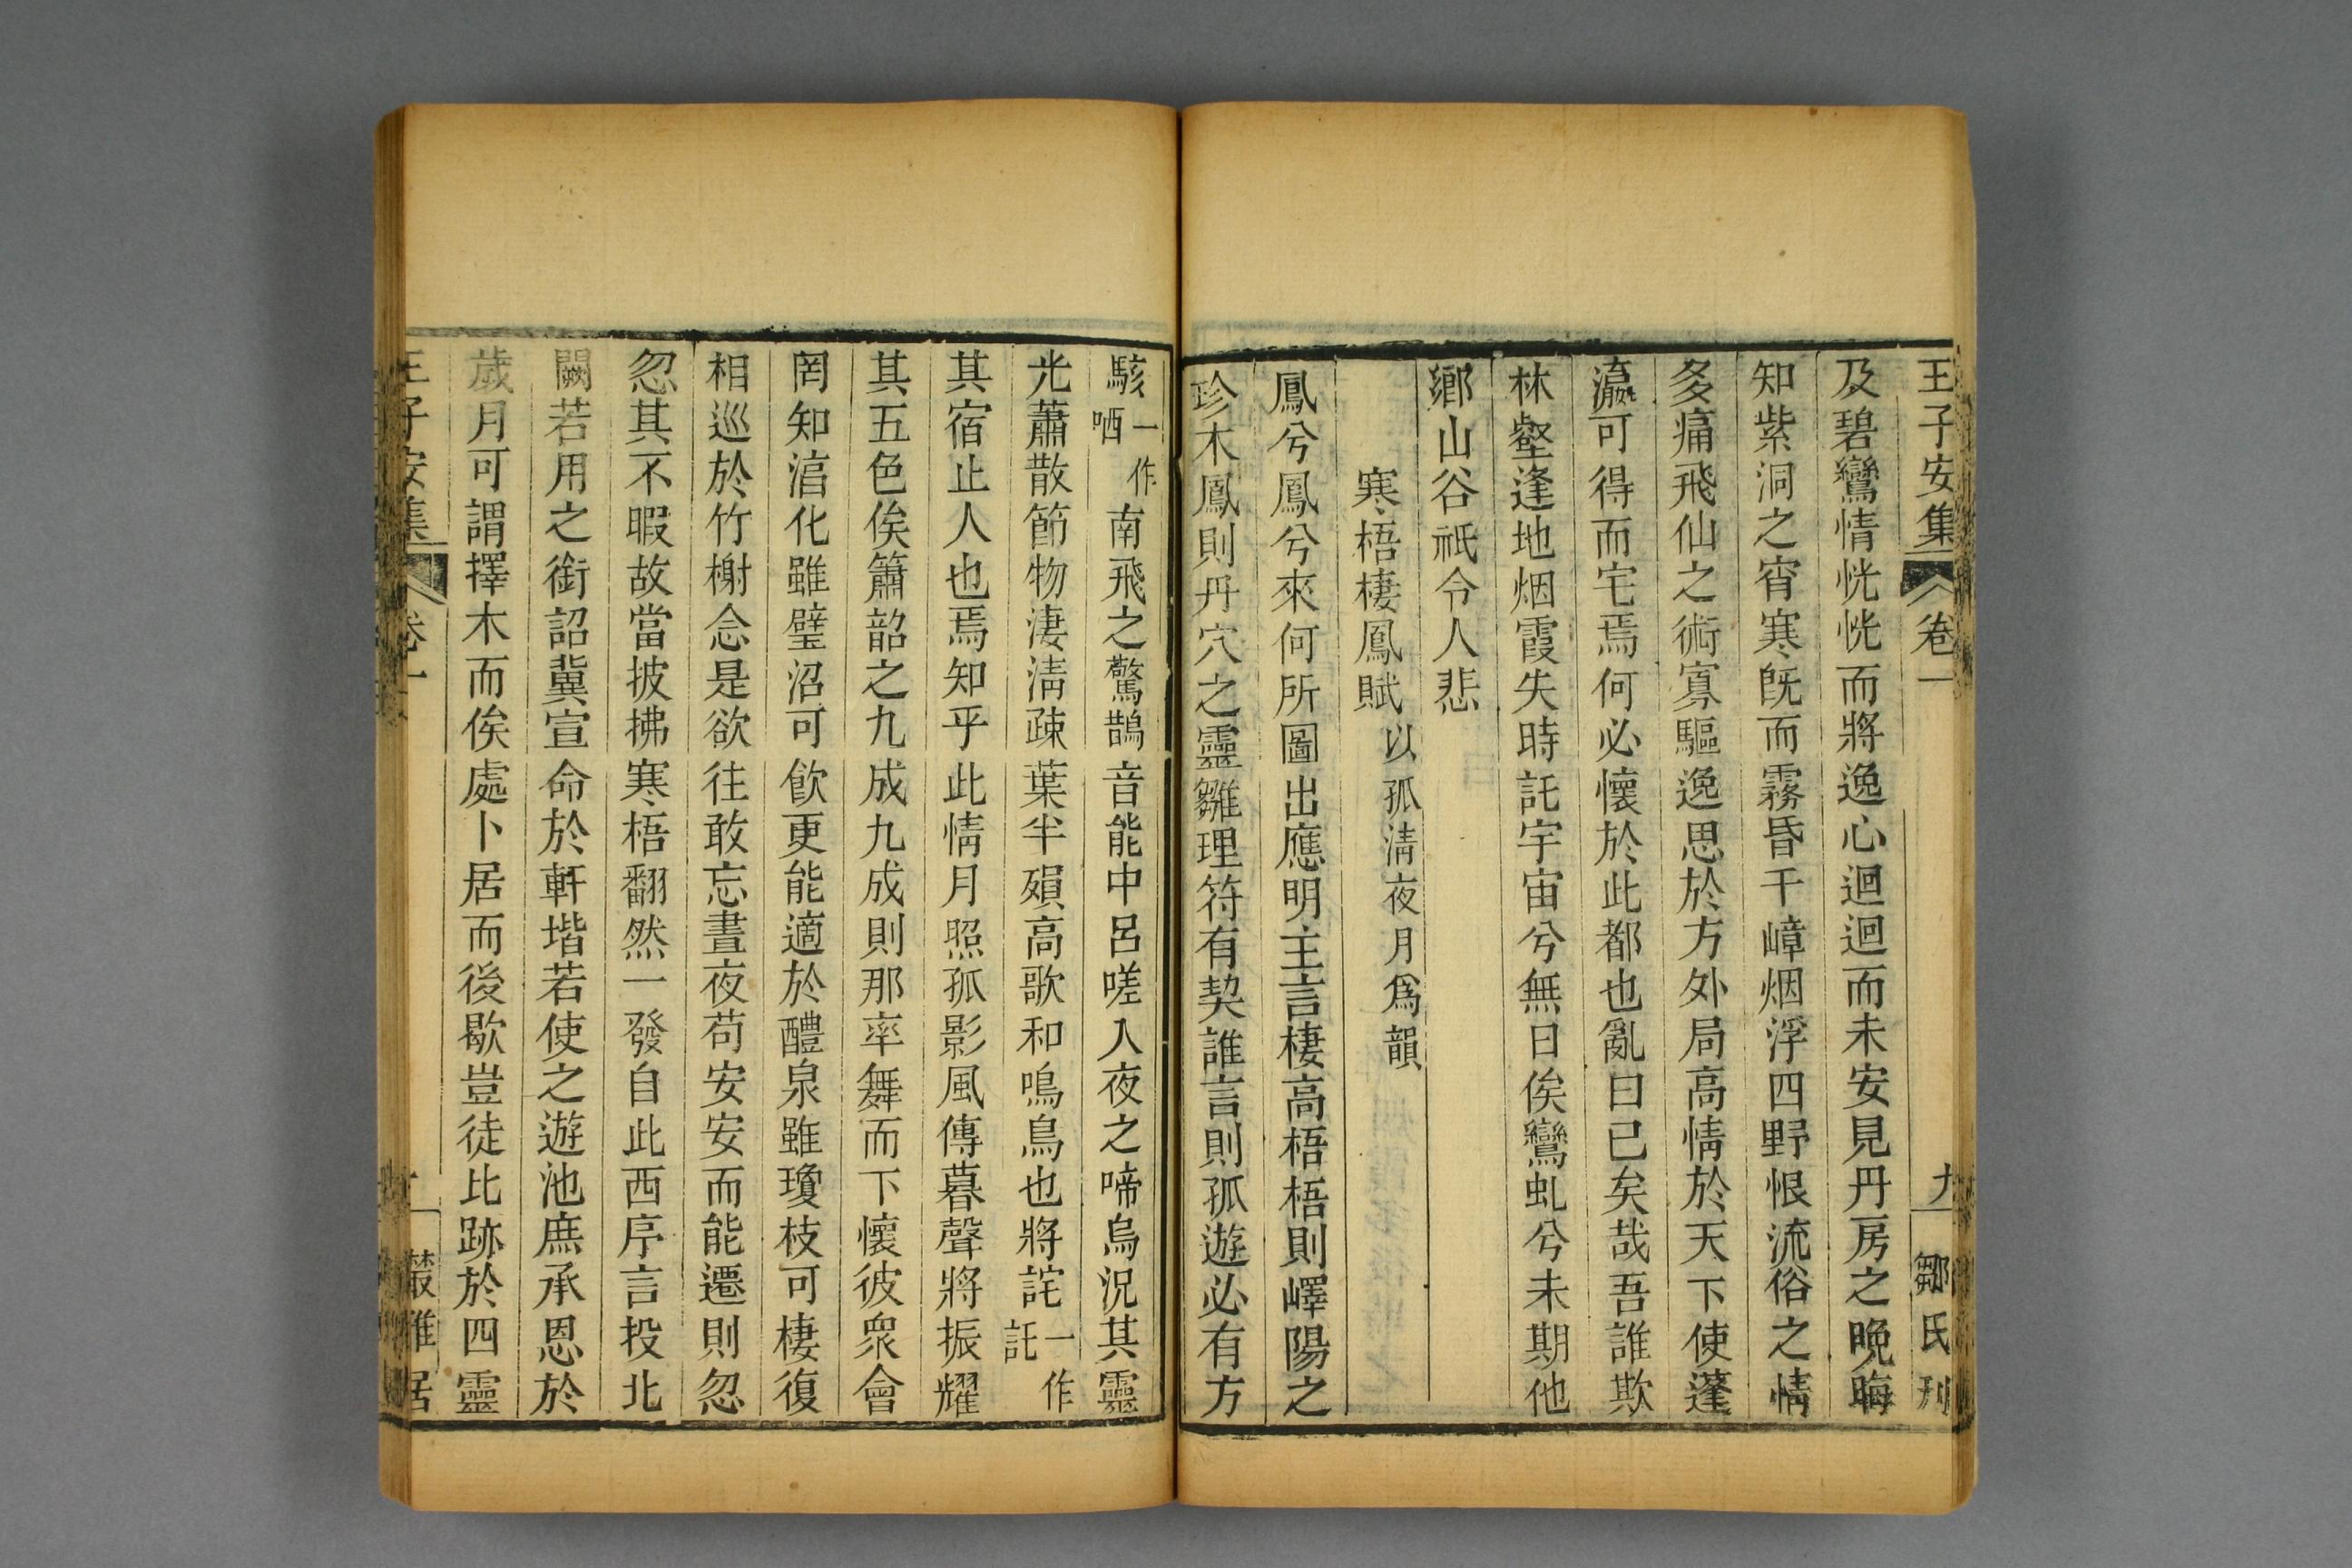 王子安集 卷一 九 鄒氏刊
及碧鸞情恍恍而將逸心迴迴而未安見丹房之晚晦
知紫洞之宵寒旣而霧昏千嶂烟浮四野恨流俗之情
多痛飛仙之術寡驅逸思於方外局高情於天下使蓬
瀛可得而宅焉何必懷於此都也亂曰已矣哉吾誰欺
林壑逢地烟霞失時託宇宙兮無日俟鸞虬兮未期他
鄉山谷祇令人悲
寒梧棲鳳賦 以孤淸夜月爲韻
鳳兮鳳兮來何所圖出應明主言棲高梧梧則嶧陽之
珍木鳳則丹穴之靈雛理符有契誰言則孤遊必有方
駭一作哂南飛之驚鵲音能中呂嗟入夜之啼烏況其靈
光蕭散節物淒淸疎葉半殞高歌和鳴鳥也將詫一作託
其宿止人也焉知乎此情月照孤影風傳暮聲將振耀
其五色俟簫韶之九成九成則那率舞而下懷彼衆會
罔知淯化雖璧沼可飮更能適於醴泉雖瓊枝可棲復
相巡於竹榭念是欲往敢忘晝夜苟安安而能遷則忽
忽其不暇故當披拂寒梧翻然一發自此西序言投北
闕若用之銜詔冀宣命於軒堦若使之遊池庶承恩於
歲月可謂擇木而俟處卜居而後歇豈徒比跡於四靈
王子安集 卷一 叢雅居